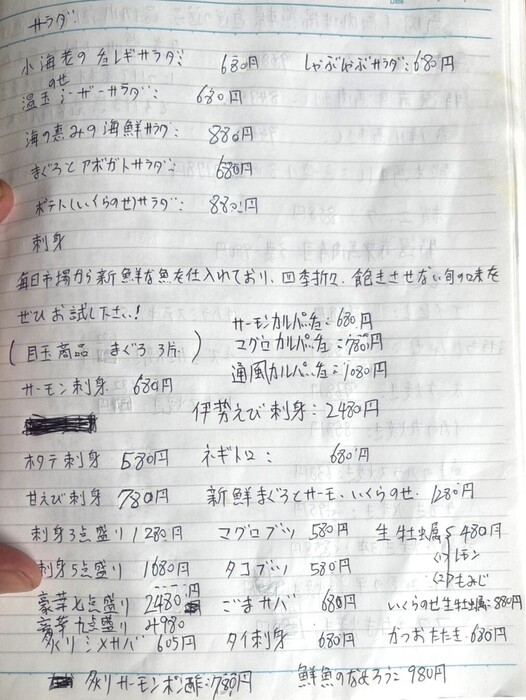 サラダ
小海老の危レギサラダ: 680円 しゃぶしゃぶサラダ: 680円
温玉のせシーザーサラダ: 680円
海の恵みの海鮮サラダ: 880円
まぐろとアボガトサラダ: 680円
ポテト(いくらのせ)サラダ: 880円
刺身
毎日市場から新鮮な魚を仕入れており、四季折々、飽きさせない旬の味を
ぜひお試し下さい!
サーモンカルパッチョ: 680円
(目玉商品 まぐろ 3片) マグロカルパッチョ: 780円
通風カルパッチョ: 1080円
サーモン刺身 680円
伊勢えび刺身: 2480円
ホタテ刺身 580円 ネギトロ: 680円
甘えび刺身 780円 新鮮まぐろとサーモ、いくらのせ. 1280円
刺身3点盛り 1280円 マグロブツ 580円 生牡蛎 480円
(1)レモン
刺身5点盛り 1680円 タコブツ 580円
(2)もみじ
豪華七点盛り 2480円 ごまサバ 680円 いくらのせ生牡蛎: 880円
豪華九点盛り 4980
炙りシメサバ 605円 タイ刺身 680円 かつおたたき: 680円
炙りサーモンポン酢: 780円 鮮魚のなめろう: 980円